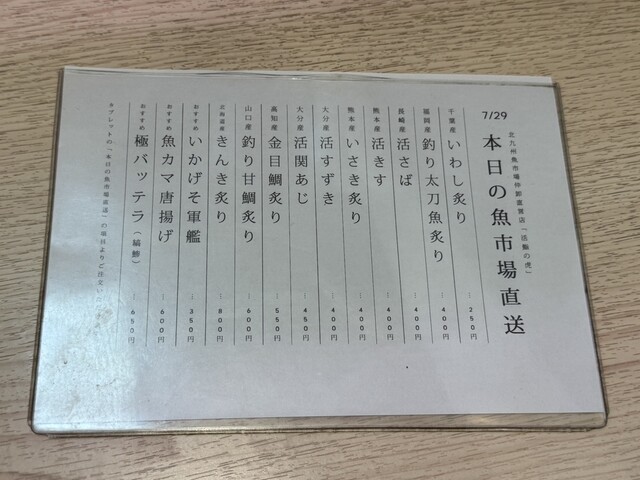 7/29
北九州魚市場仲卸直営店「活鮨の虎」
本日の魚市場直送
千葉産 いわし炙り … 250円
福岡産 釣り太刀魚炙り … 400円
長崎産 活さば … 400円
熊本産 活きす … 400円
熊本産 いさき炙り … 400円
大分産 活すずき … 400円
大分産 活関あじ … 450円
高知産 金目鯛炙り … 550円
山口産 釣り甘鯛炙り … 600円
北海道産 きんき炙り … 800円
おすすめ いかげそ軍艦 … 350円
おすすめ 魚カマ唐揚げ … 600円
おすすめ 極バッテラ … 650円
タブレットの「本日の魚市場直送」の項目よりご注文